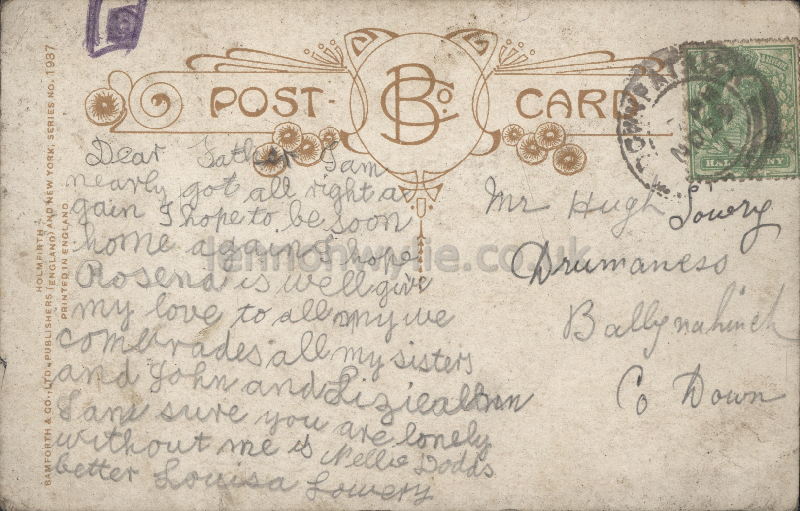 POST- CARD
BCo.
Dear Father I am
nearly got all right a
gain I hope to be soon
home again I hope
Rosena is well give
my love to all my we
comerades all my sisters
and John and Lizie
I am sure you are lonely
without me is Nellie Dodds
better Louisa Lowery
Mr Hugh Lowery
Drumaness
Ballynahinch
Co Down
HALFPENNY
HOLMFIRTH
BAMFORTH & CO., LTD., PUBLISHERS (ENGLAND) AND NEW YORK, SERIES NO. 1987
PRINTED IN ENGLAND
lennonwylie.co.uk